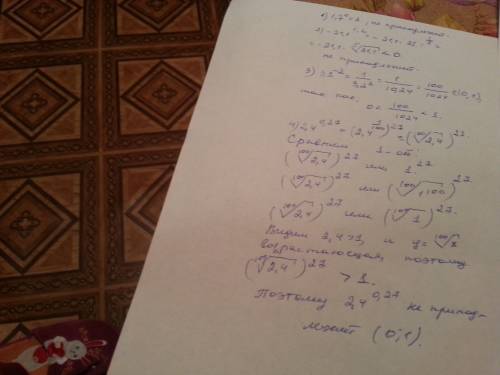 1) 1,7° = 1, не принадлежит.
= -21,1 · < 0.
не принадлежит.
3) 3,2⁻² = 1/3,2² = 1/10,24 = 100/1024 ∈ (0,1),
так как, 0 < 100/1024 < 1.
4) 2,4^0,27 = (2,4^1/100)^27 = (¹⁰⁰√2,4)^27
Сравним 1-от
(¹⁰⁰√2,4)^27 или 1^27
(¹⁰⁰√2,4)^27 или (¹⁰⁰√1¹⁰⁰)^27
(¹⁰⁰√2,4)^27 или (¹⁰⁰√1)^27.
Видим 2,4>1, и y= ¹⁰⁰√x
возрастающая, поэтому
(¹⁰⁰√2,4)^27 > 1.
Поэтому 2,4^0,27 не принад-
лежит (0;1).